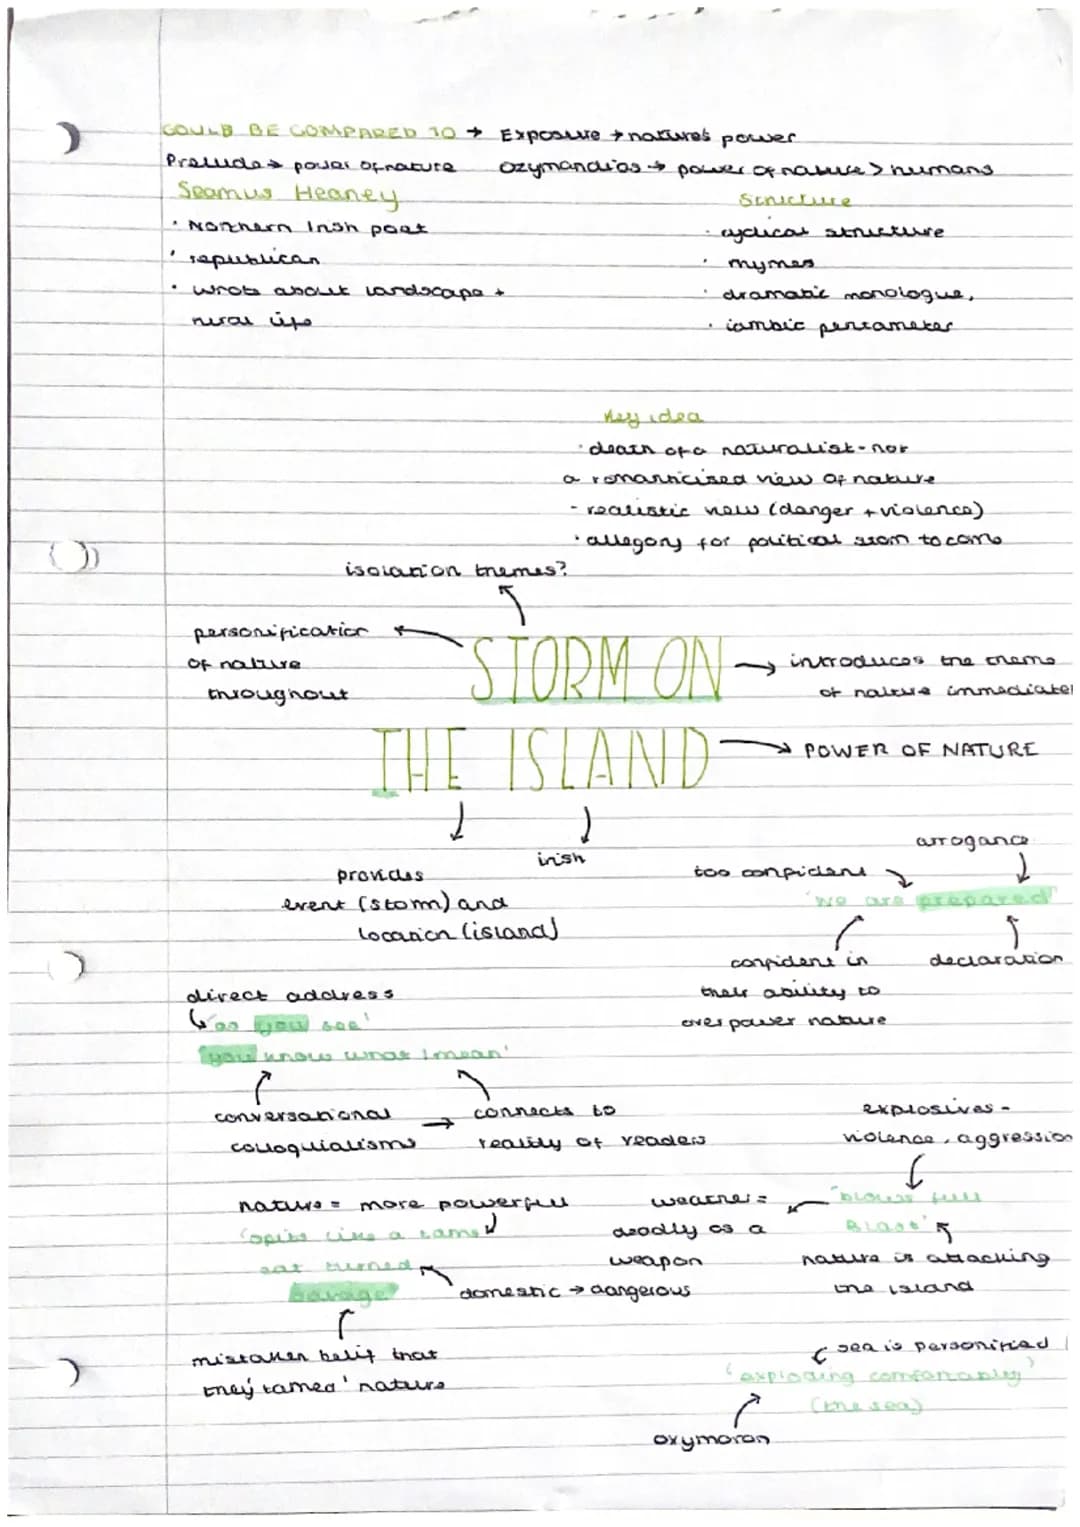 COULD BE COMPARED TO → Exposure → nature's power
Prelude → power of nature Ozymandias → power of nature > humans
Seamus Heaney
· Northern Irish poet
· republican
· wrote about landscape +
rural life
Structure
· cyclical structure
· rhymes
· dramatic monologue,
· iambic pentameter
Key idea
· death of a naturalist - not
a romanticised view of nature
- realistic view (danger + violence)
· allegory for political storm to come
isolation themes?
personification
of nature
throughout
STORM ON
THE ISLAND
→ introduces the theme
of nature immediatel
→ POWER OF NATURE
provides
event (storm) and
location (island)
irish
arrogance
too confident
'we are prepared'
confident in
their ability to
overpower nature
declaration
direct address
'as you see'
'you know what I mean'
conversational
colloquialisms
→ connects to
reality of readers
explosives -
violence, aggression
'blows full
Blast'
weather =
deadly as a
weapon
nature is attacking
the island
nature = more powerful
'spits like a tame
cat turned
savage'
domestic → dangerous
mistaken belif that
they 'tamed' nature
sea is personified
'exploding comfortably'
(the sea)
oxymoron